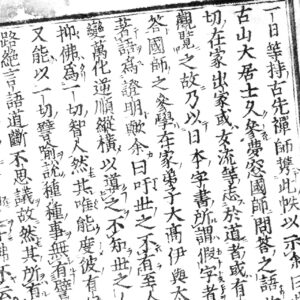 一日等持古先禪師携此帙以示本
古山大居士久參夢窓國師問答之語
切在家出家或女流等志於道者或有
觀覽之故乃以日本字書所謂假字者
答國師之參學在家弟子大高伊與
若語為證明歟余曰吁世之不有至人
變萬化逆順縱橫以道之不知世之
抑佛為一切智人然其唯能度彼有
又能以一切說種種事無有
路絕言語道斷不思議故然其所有